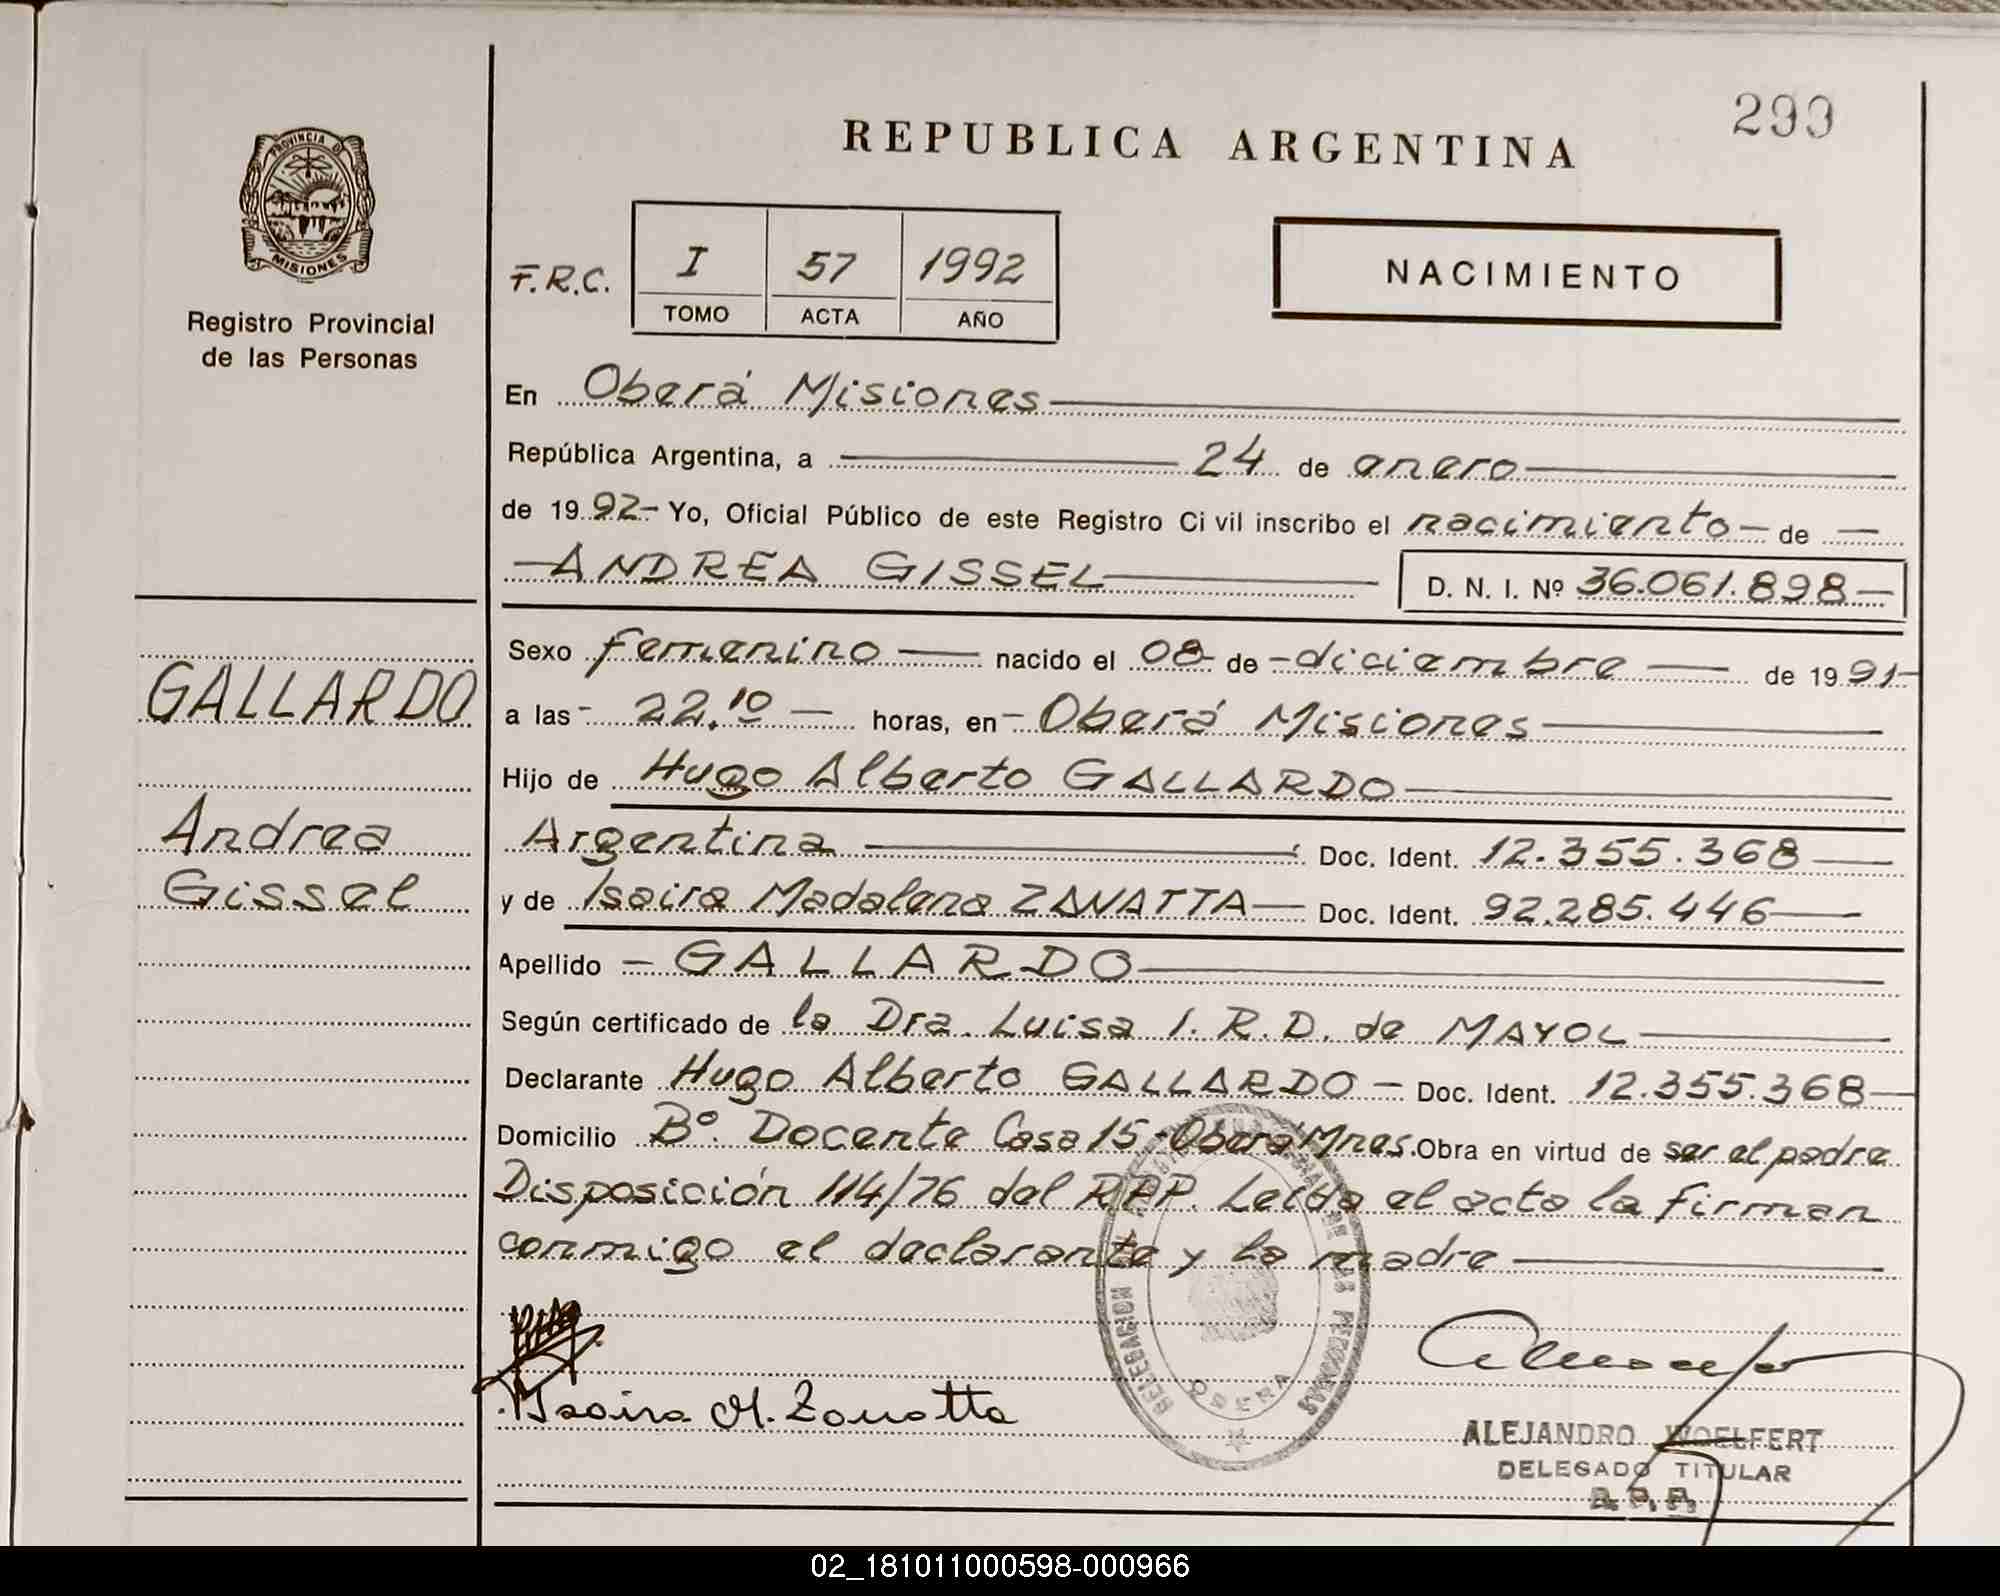 299
REPUBLICA ARGENTINA
PROVINCIA DE
MISIONES
Registro Provincial
de las Personas
F.R.C. I 57 1992
TOMO ACTA AÑO
NACIMIENTO
En Oberá Misiones
República Argentina, a 24 de enero
de 1992- Yo, Oficial Público de este Registro Ci vil inscribo el nacimiento - de -
- ANDREA GISSEL D. N. I. Nº 36.061.898 -
GALLARDO
Andrea
Gissel
Sexo femenino - nacido el 08 de - diciembre - de 1991-
a las - 22.10 - horas, en - Oberá Misiones
Hijo de Hugo Alberto GALLARDO
Argentina Doc. Ident. 12.355.368
y de Isaira Madalena ZANATTA - Doc. Ident. 92.285.446
Apellido - GALLARDO
Según certificado de la Dra. Luisa I. R. D. de MAYOL
Declarante Hugo Alberto GALLARDO - Doc. Ident. 12.355.368
Domicilio Bº. Docente Casa 15 - Oberá Mnes. Obra en virtud de ser el padre
Disposición 114/76 del RPP. Leída el acta la firman
conmigo el declarante y la madre
DELEGACION DE LAS PERSONAS
OBERA
Isaira M. Zanatta
ALEJANDRO WOELFERT
DELEGADO TITULAR
R. P. P.
02_181011000598-000966